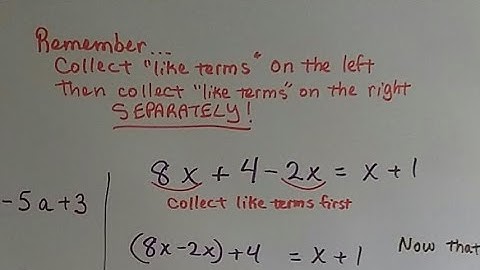 Remember...
Collect "like terms" on the left
then collect "like terms" on the right
SEPARATELY!
8x + 4 - 2x = x + 1
Collect like terms first
- 5a + 3
(8x - 2x) + 4 = x + 1
Now that